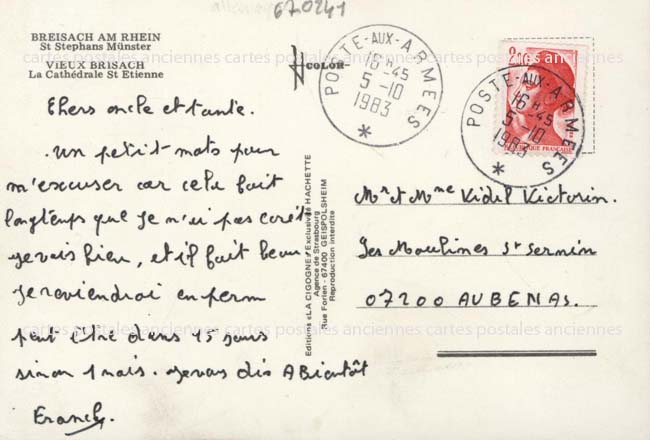 670241
BREISACH AM RHEIN
St Stephans Münster
VIEUX BRISACH
La Cathédrale St Etienne
COLOR
POSTE-AUX-ARMEES
16 H 45
5-10
1983
*
POSTE-AUX-ARMEES
16 H 45
5-10
1983
*
REPUBLIQUE FRANÇAISE
cartes postales anciennes cartes postales anciennes cartes postales anciennes
Chers oncle et tante.
Un petit mots pour
m'escuser car cela fait
longtemps que je n'ai pas écrit
je vais bien, et il fait beau
Je reviendrai en perm
peut être dans 15 jours
sinon 1 mois. Je vous dis A Bientôt
Franck.
Editions «LA CIGOGNE» Exclusivité HACHETTE
Agence de Strasbourg
Rue Forlen - 67400 GEISPOLSHEIM
Reproduction interdite
Mr et Mme Vidil Victorin.
Les Moulines St Sernin
07200 AUBENAS.
cartes postales anciennes cartes postales anciennes cartes postales anciennes